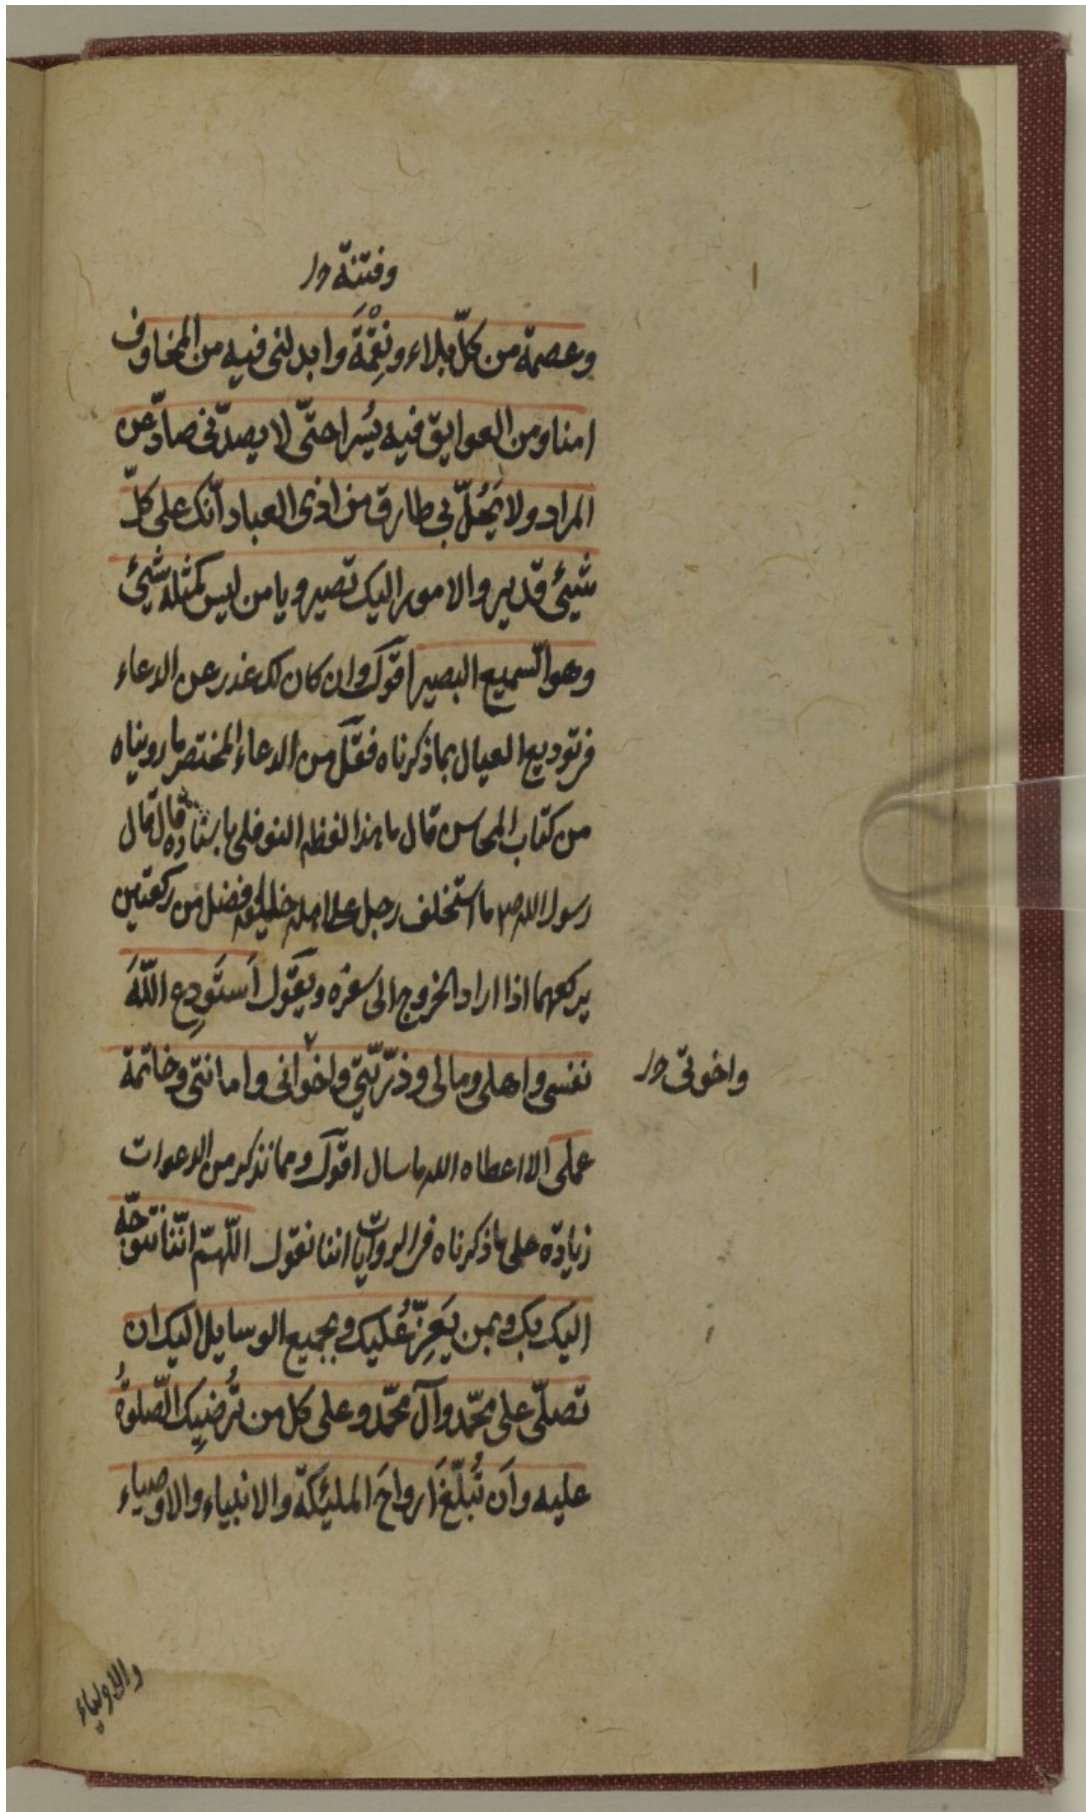 وفتنة
وعصمة من كلّ بلاء ونِقْمَة وابدلنى فيه من المخاوف
امنا ومن العوايق فيه يُسرا حتّى لا يصدّنى صادّ عن
المراد ولا يَحُلّ بى طارق من اذى العباد انّك على كلّ
شيئ قدير والامور اليك تصير ويا من ليس كمثله شيئ
وهو السّميع البصير اقول وان كان لك عذر عن الدعاء
فى توديع العيال بما ذكرناه فقل من الدعاء المختصر ما رويناه
من كتاب المحاسن قال ما هذا لفظه النوفلى باسناده قال قال
رسول الله ص ما استخلف رجل على اهله خليفة افضل من ركعتين
يركعهما اذا اراد الخروج الى سفره ويقول اَستَودِع اللّهَ
نفسى واهلى ومالى وذرّيّتى واخوانى وامانتى وخاتمة
واخوتى
عملى الا اعطاه الله ما سال اقول ومما نذكر من الدعوات
زيادة على ما ذكرناه فى الروايات اننا نقول اللّهمّ انّنا نتوجّه
اليك بك وبمن يَعِزّ عَليك وبجميع الوسايل اليك ان
تصلّى على محمّد وآل محمّد وعلى كل من تُرضيك الصّلوةُ
عليه وَاَن تُبلّغَ اَرواحَ الملئكة والانبياء والاوصياء
والاولياء